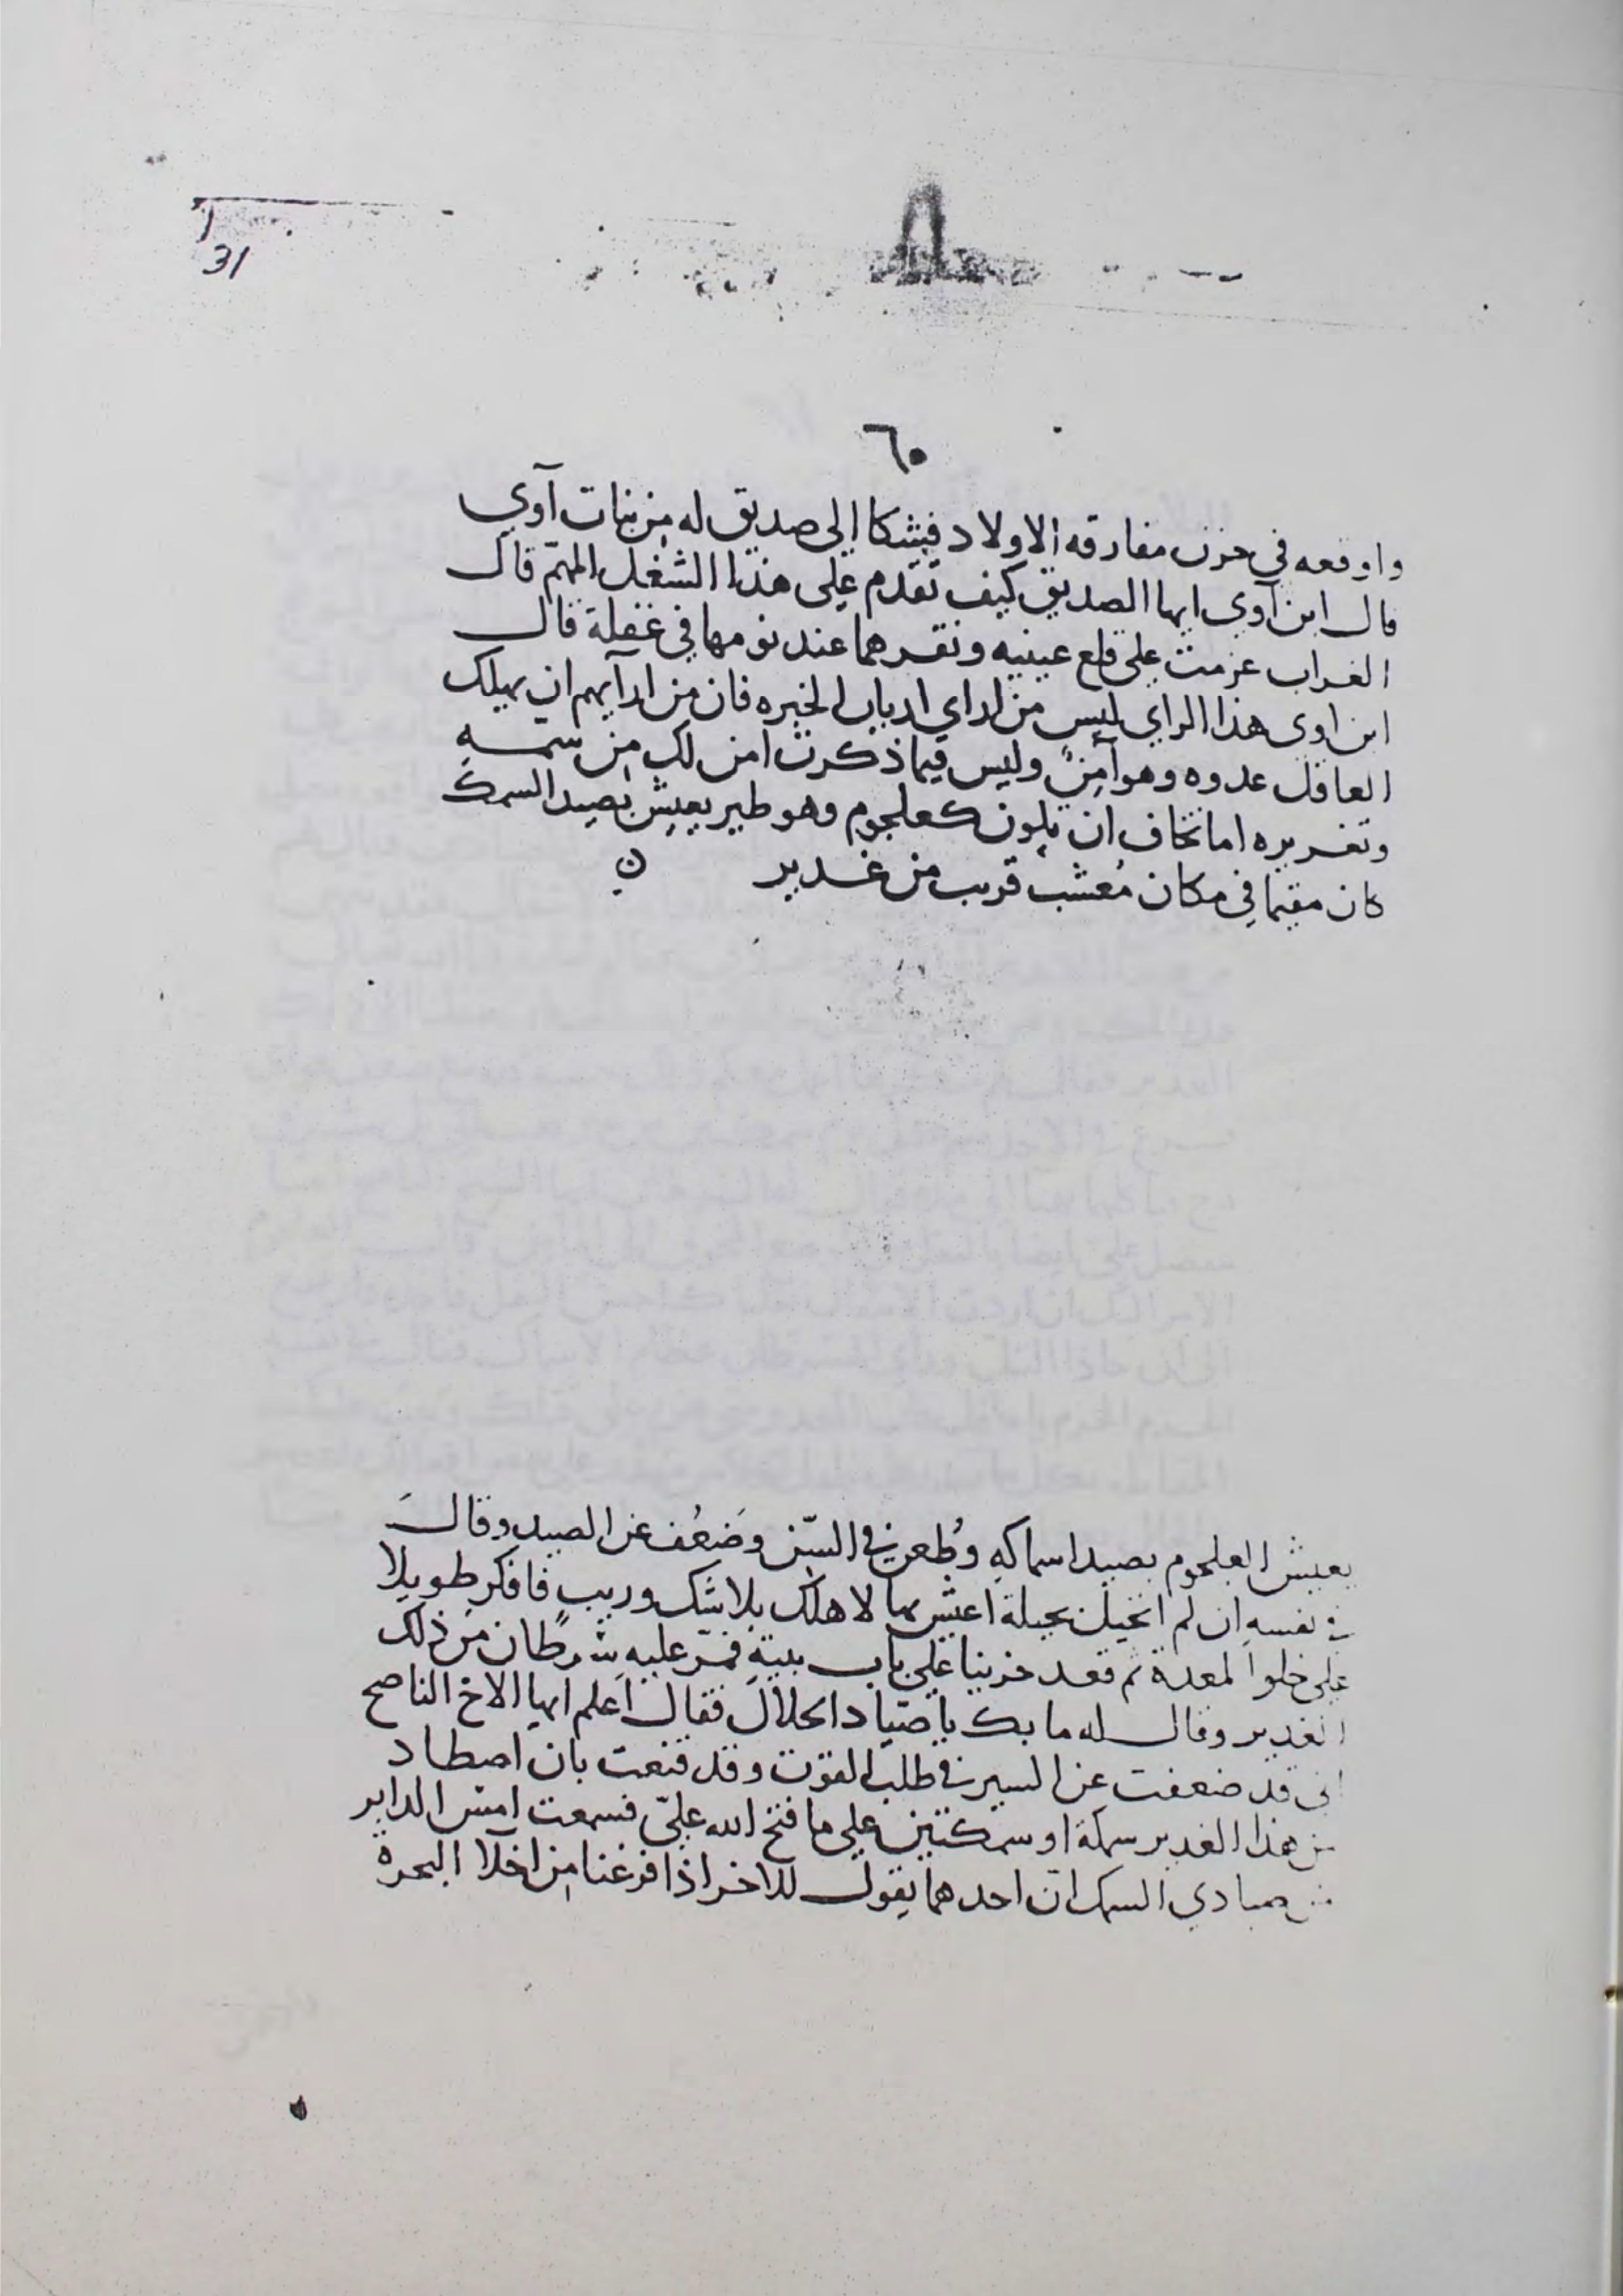 31
٦٠
واوقعه في حزن مفارقه الاولاد فشكا الى صديق له من بنات آوي
قال ابن آوي ايها الصديق كيف تقدم على هذا الشغل المهم قال
الغراب عزمت على قلع عينيه ونقرهما عند نومها في غفلة قال
ابن اوى هذا الراي ليس من اراي ارباب الخبره فان من ارآيهم ان يهلك
العاقل عدوه وهو آمن وليس فيما ذكرت امن لك من
وتغريره اما تخاف ان يكون كعلجوم وهو طير يعيش بصيد السمك
كان مقيما في مكان مُعشب قريب من غدير
يعيش العلجوم بصيد اسماكه وطعن في السّن وضَعُف عن الصيد وقال
في نفسه ان لم اتحيل بحيلة اعش بها لا هلك بلا شك وريب فافكر طويلا
على خلو المعدة ثم قعد حزينا على باب بيته فمرّ عليه من ذلك
الغدير وقال له ما بك يا صيّاد الحلال فقال اعلم ايها الاخ الناصح
انى قد ضعفت عن السير في طلب القوت وقد قنعت بان اصطاد
من هذا الغدير سمكة او سمكتين على ما فتح الله عليّ فسمعت امس الدابر
من صيادي السمك ان احدهما يقول للاخر اذا فرغنا من اخلآ البحرة